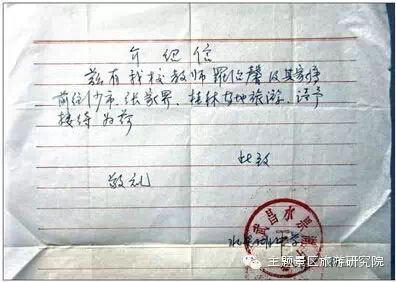 介绍信
兹有我校教师罗伯馨及其家属
前往沙市、张家界、桂林等地旅游，请予
接待为荷
此致
敬礼
武昌水
主题景区旅游研究院